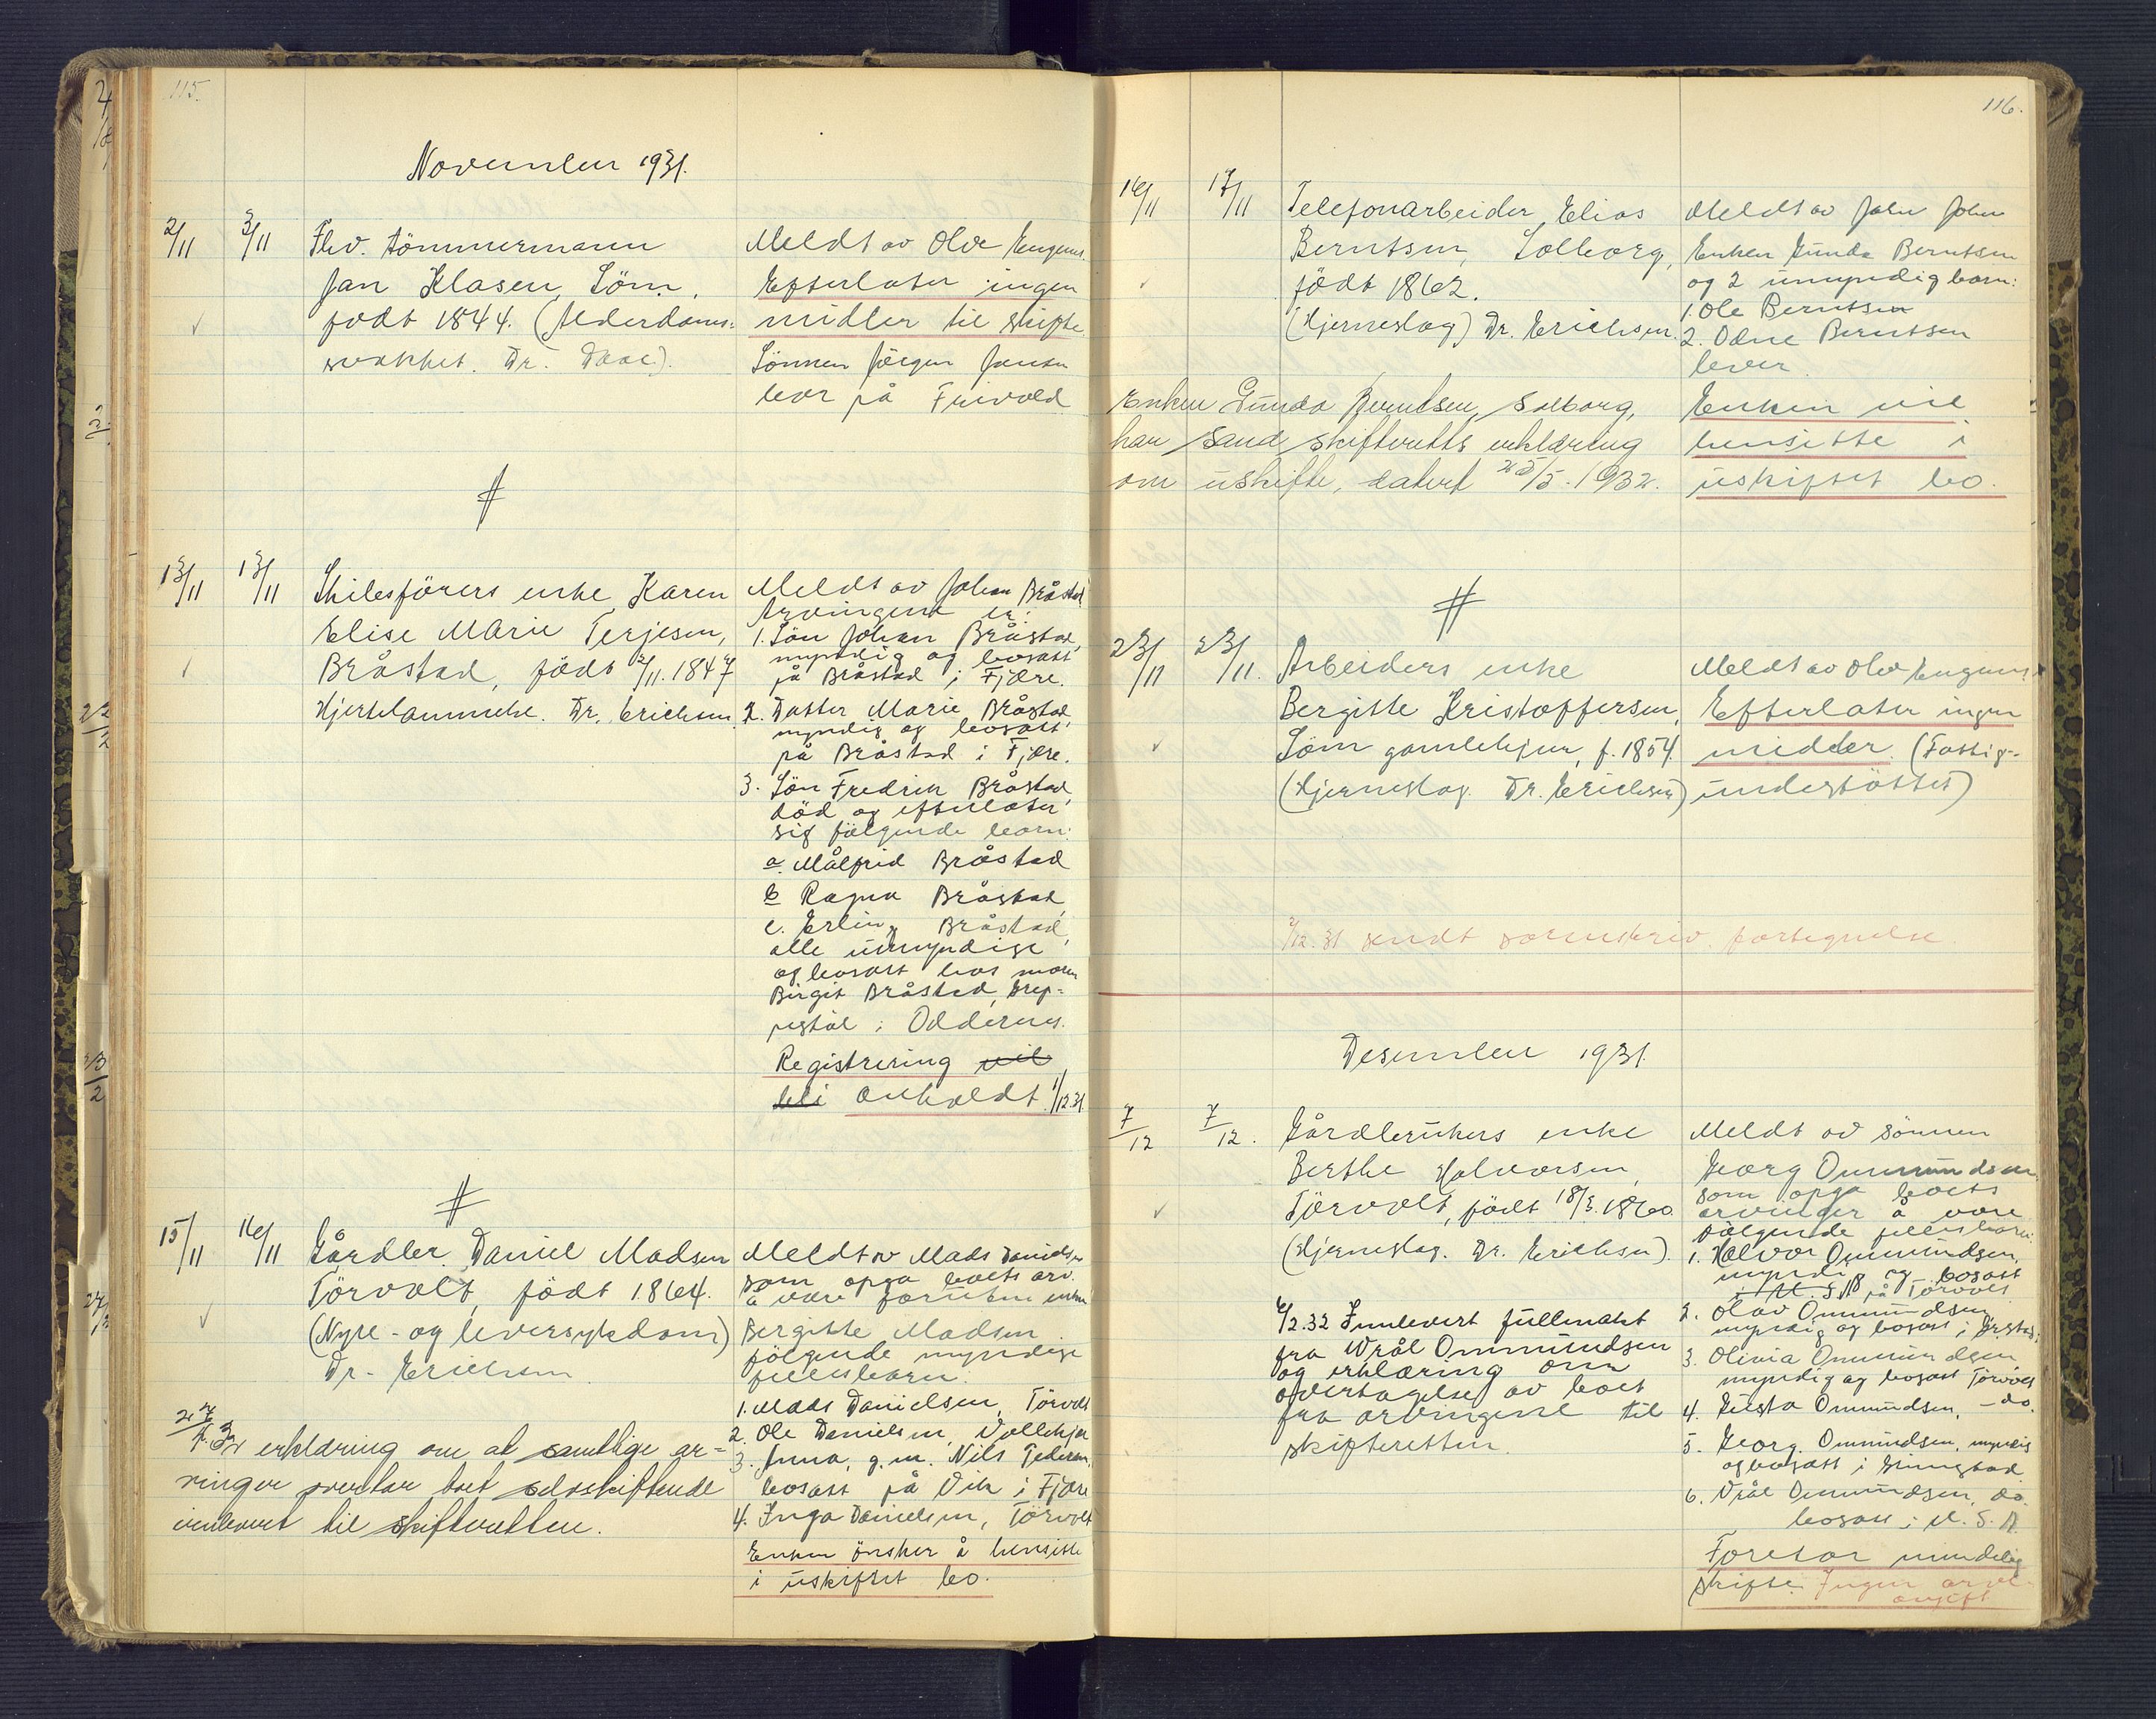 115.
November 1931.
2/11 3/11 Fhv. tömmermann
Jan Klasen, Söm,
født 1844. (Alderdoms-
svakhet. Dr. Daae).
Meldt av Olve
Efterlater ingen
midler til skifte
Sönnen Jörgen Jensen
bor på Frivold
13/11 13/11 Skibsförers enke Karen
Elise Marie Terjesen,
Bråstad, födt 2/11.1847
Hjertelammelse. Dr. Erichsen
Meldt av Johan Bråstad
Arvingene er:
1. Sön Johan Bråstad,
myndig og bosatt
på Bråstad i Fjære.
2. Datter Marie Bråstad,
myndig og bosatt
på Bråstad i Fjære.
3. Sön Fredrik Bråstad,
död og efterlater
sig fölgende barn:
a. Målfrid Bråstad
b Ragna Bråstad
c. Erling Bråstad,
alle umyndige
og bosatt hos moren
Birgit Bråstad,
i Oddernes.
Registrering vil
bli avholdt 1/12.31
15/11 16/11 Gårdbr. Daniel Madsen
Törvolt, födt 1864.
(Nyre- og leversykdom)
Dr. Erichsen
Meldt av Mads Danielsen
som opga boets arv.
å være foruten enken
Bergitte Madsen
fölgende myndige
fellesbarn:
1. Mads Danielsen, Törvolt
2. Ole Danielsen, Vollekjær
3. Anna, g.m. Nils Pedersen,
bosatt på Vik i Fjære
4. Inga Danielsen, Törvolt
Enken önsker å hensitte
i uskiftet bo.
erklæring om at samtlige ar-
vinger overtar boet selvskiftende
innlevert til skifteretten.
116.
16/11 17/11 Telefonarbeider Elias
Berntsen, Solborg,
födt 1862.
(Hjerneslag) Dr. Erichsen.
Meldt av
Enken Gunda Berntsen
og 2 umyndig barn:
1. Ole Berntsen
2. Odne Berntsen
lever.
Enken vil
hensitte i
uskiftet bo.
Enken Gunda Berntsen, Solborg,
har Sand skifteretts erklæring
om uskifte, datert 25/5.1932.
23/11 23/11. Arbeiders enke
Bergitte Kristoffersen,
Söm gamlehjem, f. 1854.
(Hjerneslag. Dr. Erichsen)
Meldt av Olve
Efterlater ingen
midler. (Fattig-
understöttet)
2/12.31 sendt sorenskriv. fortegnelse.
Desember 1931.
7/12 7/12. Gårdbrukers enke
Berthe Halvorsen,
Törvolt, födt 18/3.1860
(Hjerneslag. Dr. Erichsen).
Meldt av sönnen
Georg Ommundsen
som opga boets
arvinger å være
fölgende fellesbarn:
1. Halvor Ommundsen,
myndig og bosatt
på Törvolt
2. Olav Ommundsen,
myndig og bosatt i
3. Olivia Ommundsen,
myndig og bosatt Törvolt
4. Gusta Ommundsen, - do.
5. Georg Ommundsen, myndig
og bosatt i Grimstad.
6. Vrål Ommundsen, do.
bosatt i U.S.A.
Foretar mindelig
skifte. Ingen arve-
avgift
6/2.32 Innlevert fullmakt
fra Vrål Ommundsen
og erklæring om
overtagelse av boet
fra arvingene til
skifteretten.